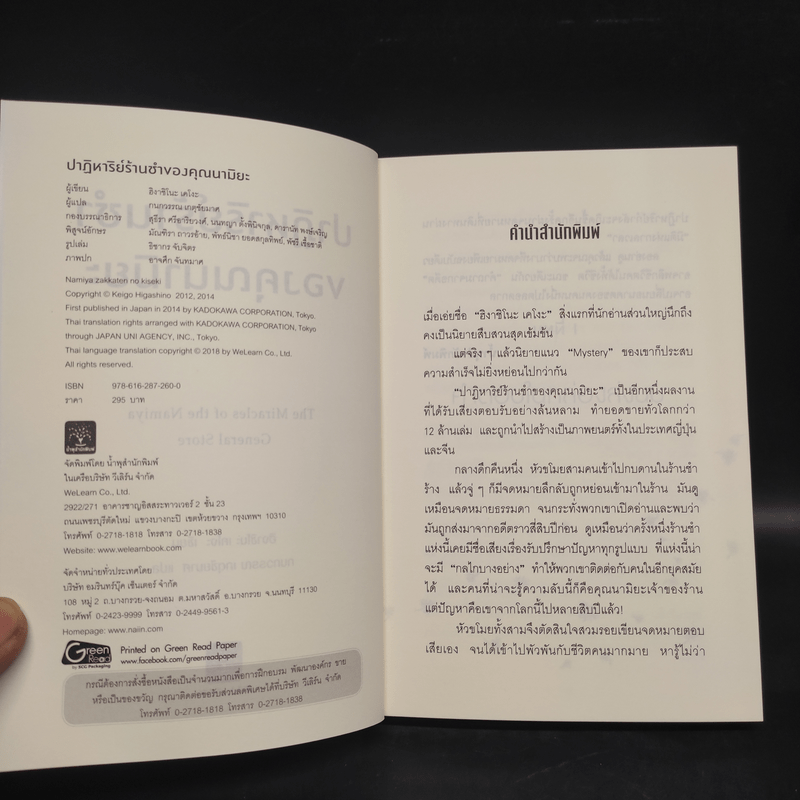 ปาฏิหาริย์ร้านชำของคุณนามิยะ
ผู้เขียน ฮิงาชิโนะ เคโงะ
ผู้แปล กนกวรรณ เกตุชัยมาศ
กองบรรณาธิการ สุธีรา ศรีอารียวงศ์, นนทญา ตั้งพินิจกุล, ดารานัท พงษ์เจริญ
พิสูจน์อักษร มัณฑิรา ถาวรอ้าย, พัทธ์นิชา ยอดสกุลทิพย์, พัชรี เชื้อชาติ
รูปเล่ม ธิชากร จับจิตร
ภาพปก อาจศึก จันทมาศ
Namiya zakkaten no kiseki
Copyright © Keigo Higashino 2012, 2014
First published in Japan in 2014 by KADOKAWA CORPORATION, Tokyo.
Thai translation rights arranged with KADOKAWA CORPORATION, Tokyo
through JAPAN UNI AGENCY, INC., Tokyo.
Thai language translation copyright © 2018 by WeLearn Co., Ltd.
All rights reserved.
ISBN 978-616-287-260-0
ราคา 295 บาท
น้ำพุสำนักพิมพ์
จัดพิมพ์โดย น้ำพุสำนักพิมพ์
ในเครือบริษัท วีเลิร์น จำกัด
WeLearn Co., Ltd.
2922/271 อาคารชาญอิสสระทาวเวอร์ 2 ชั้น 23
ถนนเพชรบุรีตัดใหม่ แขวงบางกะปิ เขตห้วยขวาง กรุงเทพฯ 10310
โทรศัพท์ 0-2718-1818 โทรสาร 0-2718-1838
Website: www.welearnbook.com
จัดจำหน่ายทั่วประเทศโดย
บริษัท อมรินทร์บุ๊ค เซ็นเตอร์ จำกัด
108 หมู่ 2 ถ.บางกรวย-จงถนอม ต.มหาสวัสดิ์ อ.บางกรวย จ.นนทบุรี 11130
โทรศัพท์ 0-2423-9999 โทรสาร 0-2449-9561-3
Homepage: www.naiin.com
Green Read by SCG Packaging
Printed on Green Read Paper
www.facebook.com/greenreadpaper
กรณีต้องการสั่งซื้อหนังสือเป็นจำนวนมากเพื่อการฝึกอบรม พัฒนาองค์กร ขาย
หรือเป็นของขวัญ กรุณาติดต่อขอรับส่วนลดพิเศษได้ที่บริษัท วีเลิร์น จำกัด
โทรศัพท์ 0-2718-1818 โทรสาร 0-2718-1838
คำนำสำนักพิมพ์
เมื่อเอ่ยชื่อ “ฮิงาชิโนะ เคโงะ” สิ่งแรกที่นักอ่านส่วนใหญ่นึกถึง
คงเป็นนิยายสืบสวนสุดเข้มข้น
แต่จริง ๆ แล้วนิยายแนว “Mystery” ของเขาก็ประสบ
ความสำเร็จไม่ยิ่งหย่อนไปกว่ากัน
“ปาฏิหาริย์ร้านชำของคุณนามิยะ” เป็นอีกหนึ่งผลงาน
ที่ได้รับเสียงตอบรับอย่างล้นหลาม ทำยอดขายทั่วโลกกว่า
12 ล้านเล่ม และถูกนำไปสร้างเป็นภาพยนตร์ทั้งในประเทศญี่ปุ่น
และจีน
กลางดึกคืนหนึ่ง หัวขโมยสามคนเข้าไปกบดานในร้านชำ
ร้าง แล้วจู่ ๆ ก็มีจดหมายลึกลับถูกหย่อนเข้ามาในร้าน มันดู
เหมือนจดหมายธรรมดา จนกระทั่งพวกเขาเปิดอ่านและพบว่า
มันถูกส่งมาจากอดีตราวสี่สิบปีก่อน ดูเหมือนว่าครั้งหนึ่งร้านชำ
แห่งนี้เคยมีชื่อเสียงเรื่องรับปรึกษาปัญหาทุกรูปแบบ ที่แห่งนี้น่า
จะมี “กลไกบางอย่าง” ทำให้พวกเขาติดต่อกับคนในอีกยุคสมัย
ได้ และคนที่น่าจะรู้ความลับนี้ก็คือคุณนามิยะเจ้าของร้าน
แต่ปัญหาคือเขาจากโลกนี้ไปหลายสิบปีแล้ว!
หัวขโมยทั้งสามจึงตัดสินใจสวมรอยเขียนจดหมายตอบ
เสียเอง จนได้เข้าไปพัวพันกับชีวิตคนมากมาย หารู้ไม่ว่า